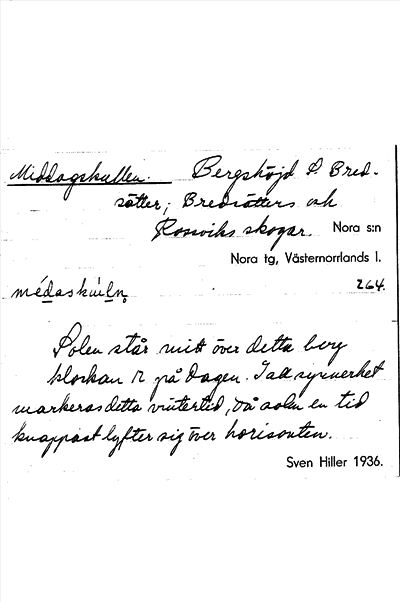 Middagskullen. Bergshöjd S. Bred-
sätter; Bredsätters och
Rossviks skogar. Nora s:n
Nora tg, Västernorrlands l.
264.
Solen står mitt över detta berg
klockan 12 på dagen. I all synnerhet
markeras detta vintertid, då solen en tid
knappast lyfter sig över horisonten.
Sven Hiller 1936.